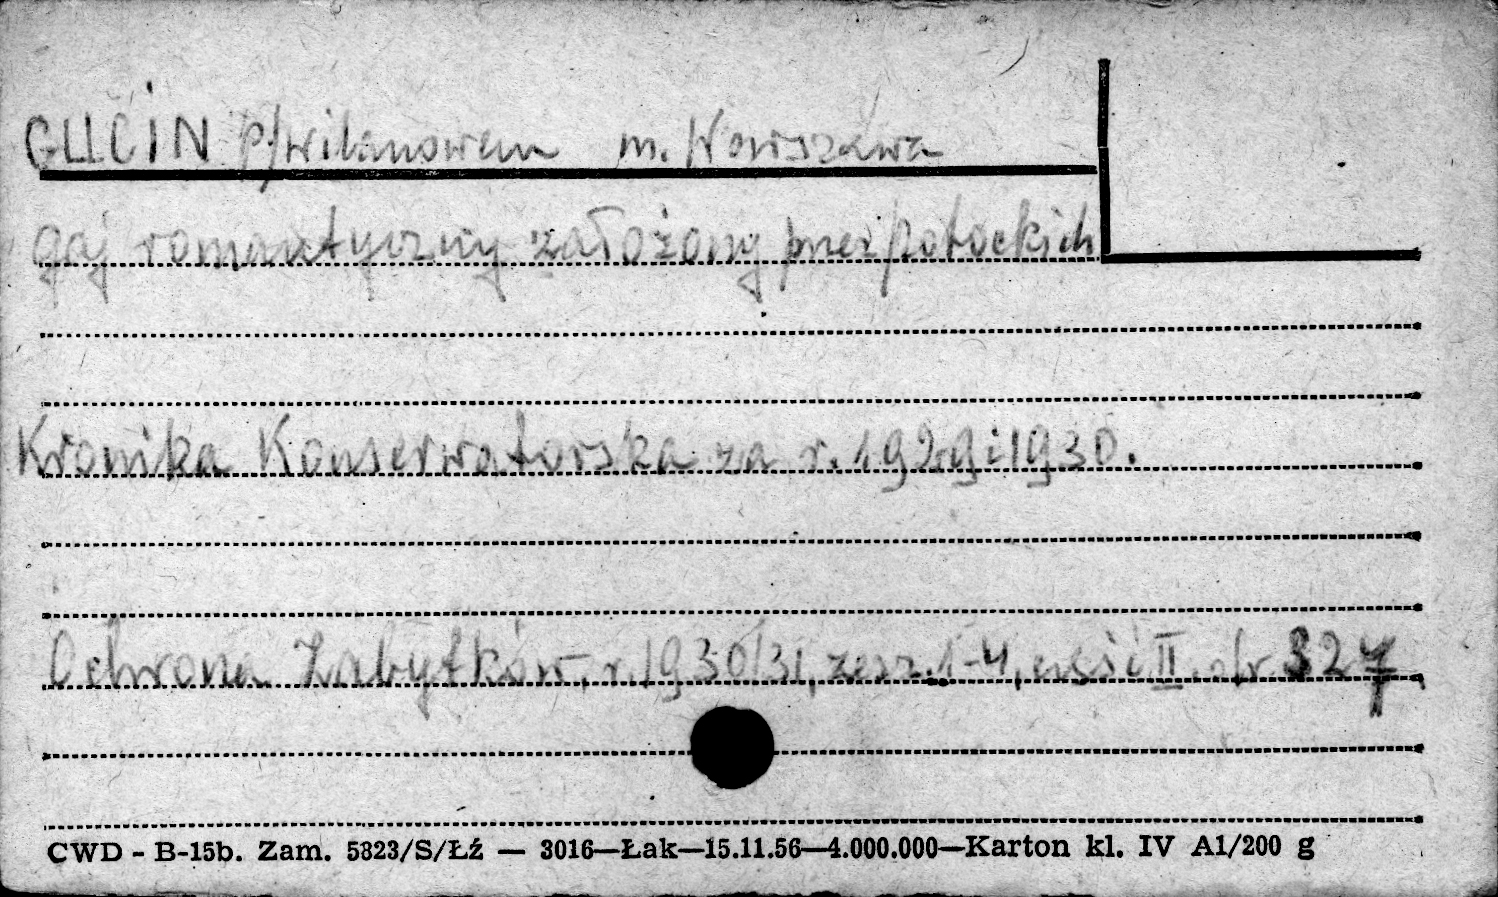 GUCIN p/wilanowem m. Warszawa
gaj romantyczny założony przez Potockich
Kronika Konserwatorska za r. 1929 i 1930.
Ochrona Zabytków, r. 1930/31, zesz. 1-4, część II. str 327
CWD - B-15b. Zam. 5823/S/Łź — 3016—Łak—15.11.56—4.000.000—Karton kl. IV A1/200 g